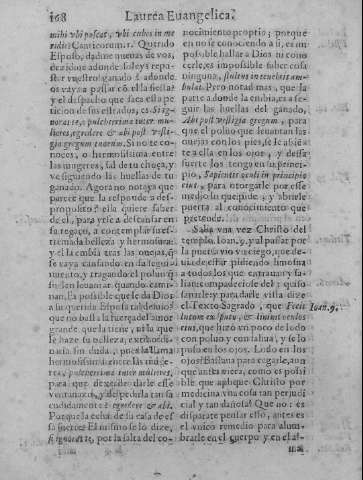 168 Laurea Euangelica.
mihi vbi pascas, vbi cubes in me
ridie? Canticorum 1. Querido
Esposo, dadme nueuas de vos,
dezidme adonde lleueys repas-
tar vuestro ganado? adonde
os vays a passar cõ el la siesta?
y el despacho que saca esta pe
ticion de sus estrados, es Si ig-
noras te, o pulcherrima inter mu-
lieres, egredere & abi post vesti-
gia gregum tuorum. Si no te co-
noces, o hermosissima entre
las mugeres, sal de tu choça, y
ve siguiendo las huellas de tu
ganado. Agora no os haya que
parece que la respondo a des-
proposito? ella quiere saber
de el, para yrse a descansar en
su regaço, a contemplar su es-
tremada belleza y hermosura:
y el la embia tras las ouejas, q̃
se vaya cansando en su segui
miento, y tragando el poluo q̃
suelen leuantar quando cami-
nan. Es possible que le da Dios
a su querida Esposa
que no basta la fuerça del amor
grande que la tiene, ni la que
le haze su belleza, extraordi-
naria sin duda, pues la llama
hermosissima entre las muge-
res, pulcherrima inter mulieres,
para que dexasse darle esse
y despedirla tan sa
cudidamente? egredere & abi.
Porque la echa de su casa de es
sa suerte? El mismo se lo dize,
si ignoras te, por la falta del co-
nocimiento proprio; porque
en no se conociendo a si, es im
possible hallar a Dios ni cono
cerle, es impossible saber cosa
ninguna, stultus in tenebris am-
bulat. Pero notad mas, que la
parte adonde la embia, es a se-
guir las huellas del ganado,
Abi post vestigia gregum, para
que el poluo que leuantan las
ouejas con los pies, se le assiẽ
te a ella en los ojos, y dessa
suerte los tenga en su princi-
pio, Sapientis oculi in principio
eius, para otorgarle por esse
medio lo que pide, y abrirle
puerta al conocimiento que
pretende.
Salia vna vez Christo del
templo, Ioan. 9. y al passar por
la puerta vio vn ciego, que de-
uia de estar pidiendo limosna
a todos los que entrauan y sa-
lian: compadeciose del: y quiso
sanarle; y para darle vista dize
el Texto Sagrado, que Fecit
lutum ex sputo, & liniuit oculos
eius, que hizo vn poco de lodo
con poluo y con saliua, y se lo
puso en los ojos. Lodo en los
ojos? Bastaua para cegarle, aun
que antes viera, como es possi
ble que aplique Christo por
medicina vna cosa tan perjudi
cial y tan dañosa? Que no: es
disparate pensar esso, antes es
el vnico remedio para alum-
brarle en el cuerpo y en el al-
Ioan. 9.